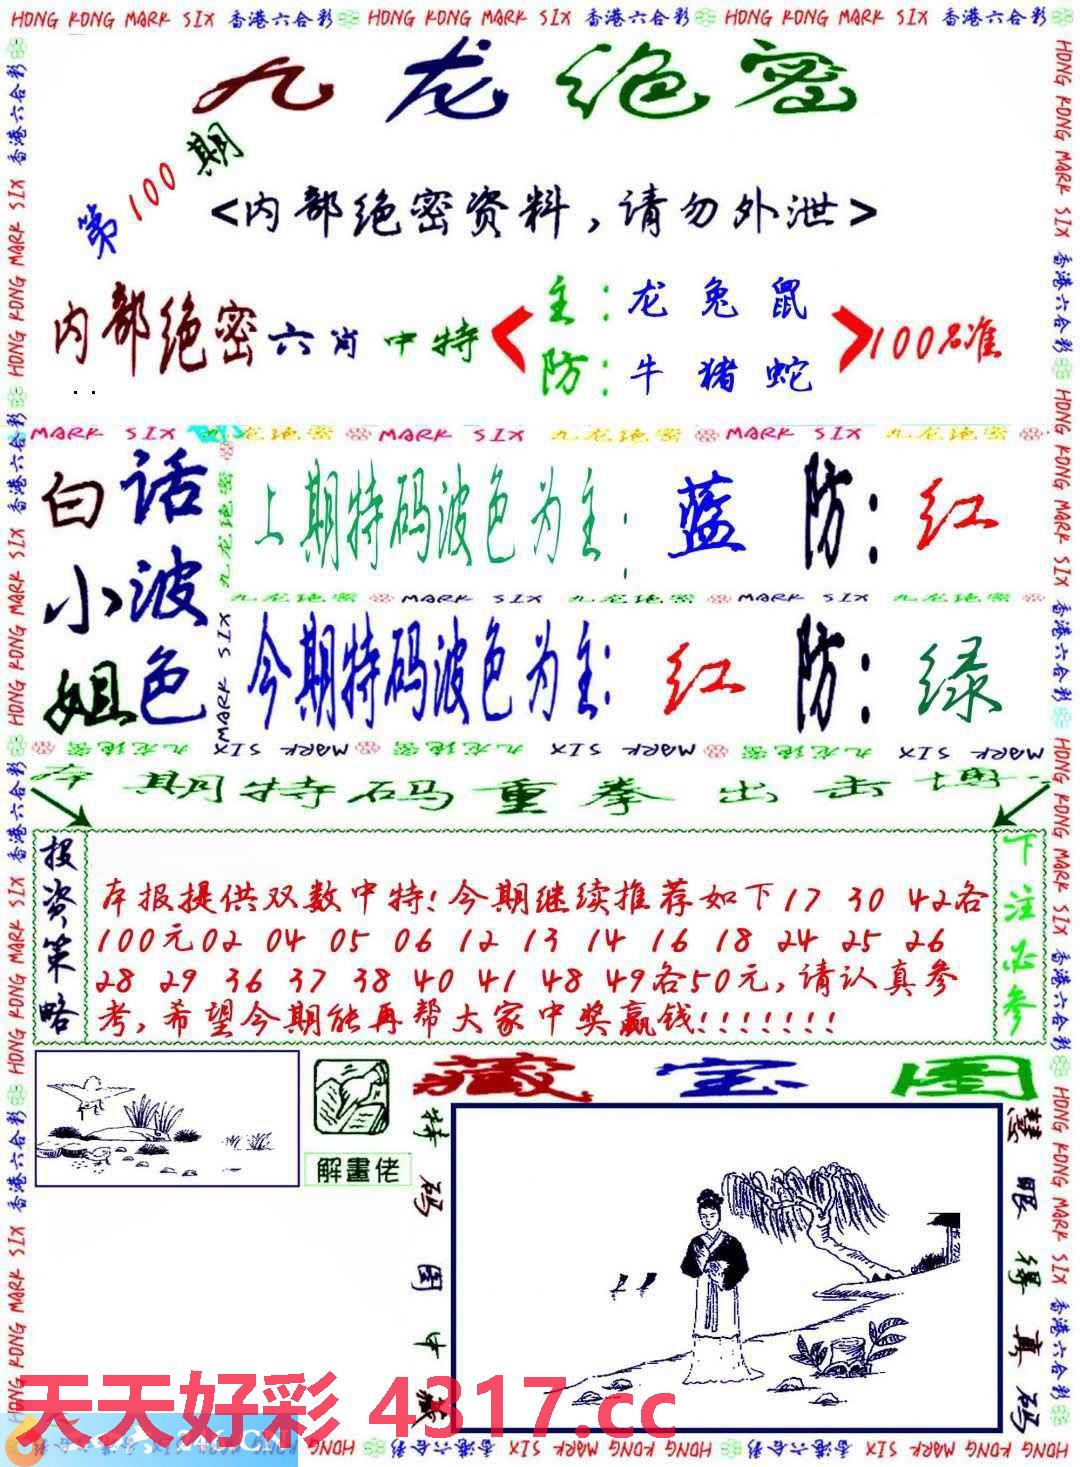 HONG KONG MARK SIX 香港六合彩 HONG KONG MARK SIX 香港六合彩 HONG KONG MARK SIX 香港六合彩
九龙绝密
第100期
<内部绝密资料,请勿外泄>
内部绝密六肖中特
主:龙兔鼠
防:牛猪蛇
100%准
MARK SIX 九龙绝密 MARK SIX 九龙绝密 MARK SIX 九龙绝密
白小姐
话波色
上期特码波色为主: 蓝 防: 红
九龙绝密 MARK SIX 九龙绝密 MARK SIX 九龙绝密
今期特码波色为主: 红 防: 绿
本期特码重拳出击博
投资策略
本报提供双数中特!今期继续推荐如下17 30 42各
100元02 04 05 06 12 13 14 16 18 24 25 26
28 29 36 37 38 40 41 48 49各50元,请认真参
考,希望今期能再帮大家中奖赢钱!!!!!!!
下注必参
解畫佬
藏宝图
特码图中藏
慧眼得真码
天天好彩 4317.cc